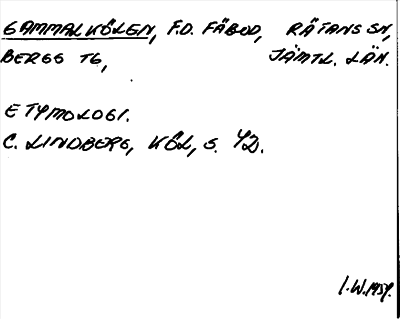 GAMMALKÖLEN, F.D. FÄBOD, RÄTANS SN,
BERGS TG, JÄMTL. LÄN.
ETYMOLOGI.
C. LINDBERG, KÖL, S. 42.
I.W.1959.